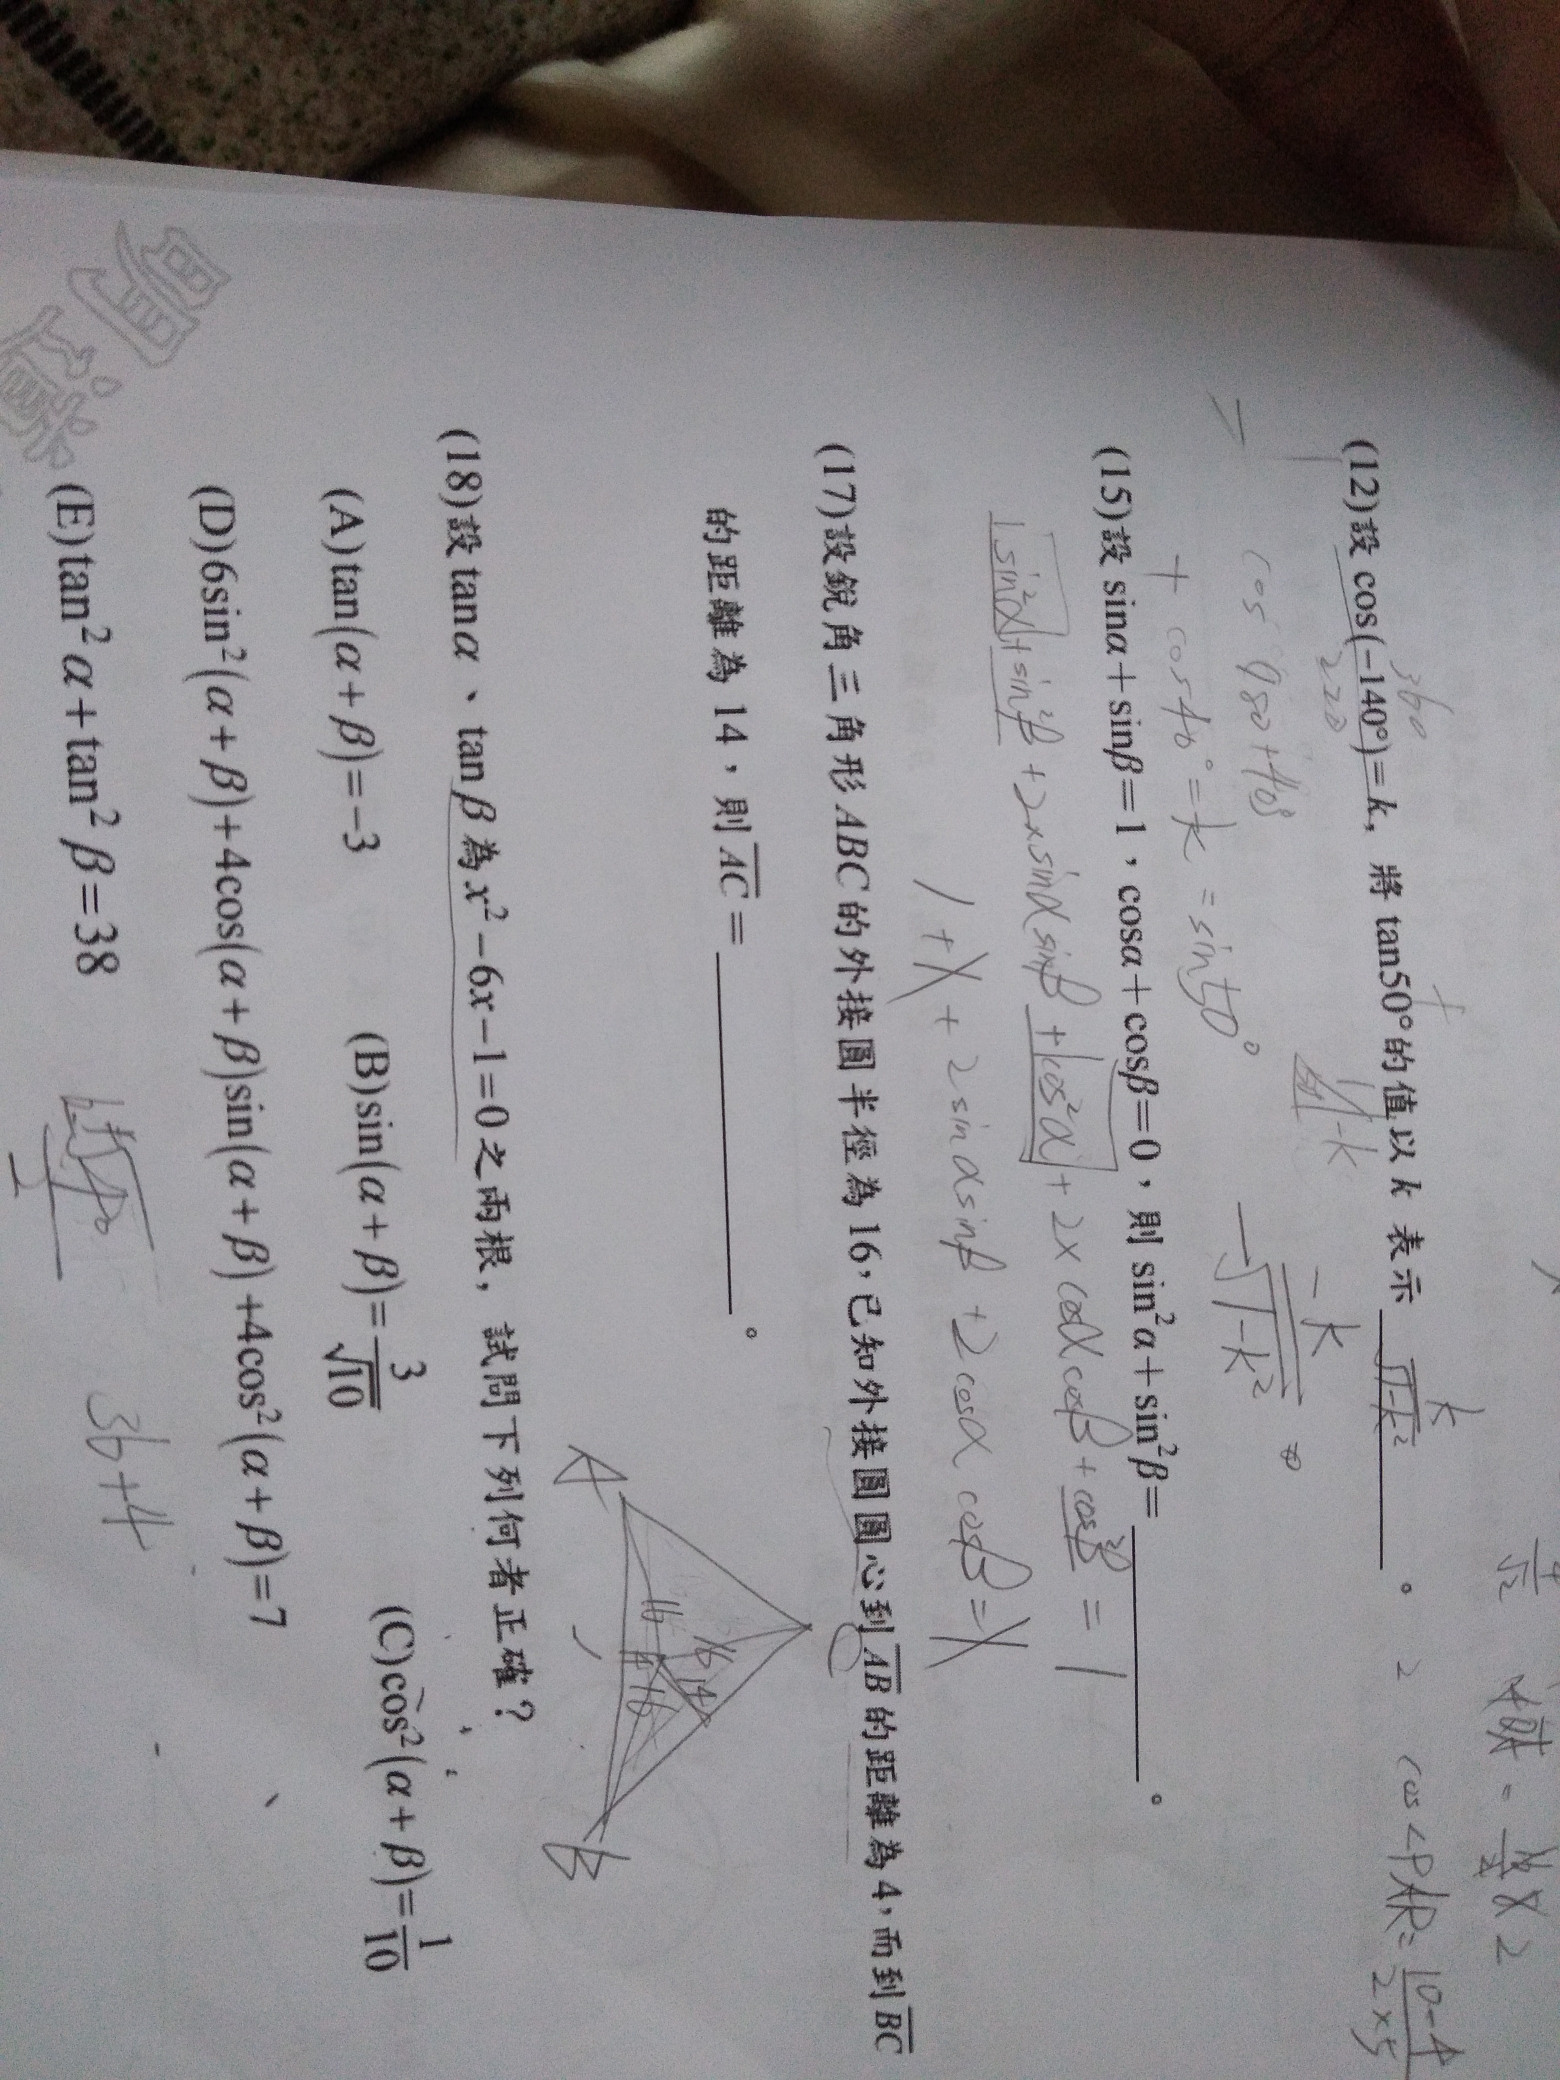 (12)設 cos(−140°)=k, 將 tan50°的值以 k 表示 k/√1-k² 。
360
220
cos 180+40°
+ cos40° = k = sin50°
-k
-√1-k²
cos∠PAR= 10-4
2×5
(15)設 sinα+sinβ=1，cosα+cosβ=0，則 sin²α+sin²β= 。
sin²α+sin²β+2×sinαsinβ+cos²α+2×cosαcosβ+cos²β = 1
1+1+2sinαsinβ+2cosαcosβ=1
(17)設銳角三角形 ABC 的外接圓半徑為 16，已知外接圓圓心到 AB 的距離為 4，而到 BC
的距離為 14，則 AC = 。
A
16 16 14
4 16
B
(18)設 tanα、tanβ 為 x²−6x−1=0 之兩根，試問下列何者正確？
(A)tan(α+β)=−3 (B)sin(α+β)=3/√10 (C)cos²(α+β)=1/10
(D)6sin²(α+β)+4cos(α+β)sin(α+β)+4cos²(α+β)=7
(E)tan²α+tan²β=38
36+4
明道